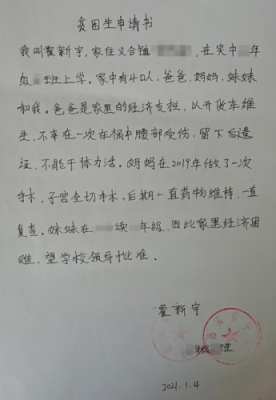 贫困生申请书
我叫翟新宇,家住义合镇,在实中年
级班上学。家中有4口人,爸爸、妈妈、妹妹
和我。爸爸是家里的经济支柱,以开货车维
生,不幸在一次车祸中腰部受伤,留下后遗
证,不能干体力活。妈妈在2019年做了一次
手术,子宫全切手术,后期一直药物维持,一直
复查。妹妹在读年级,因此家里经济困
难,望学校领导批准。
翟新宇
2021.1.4